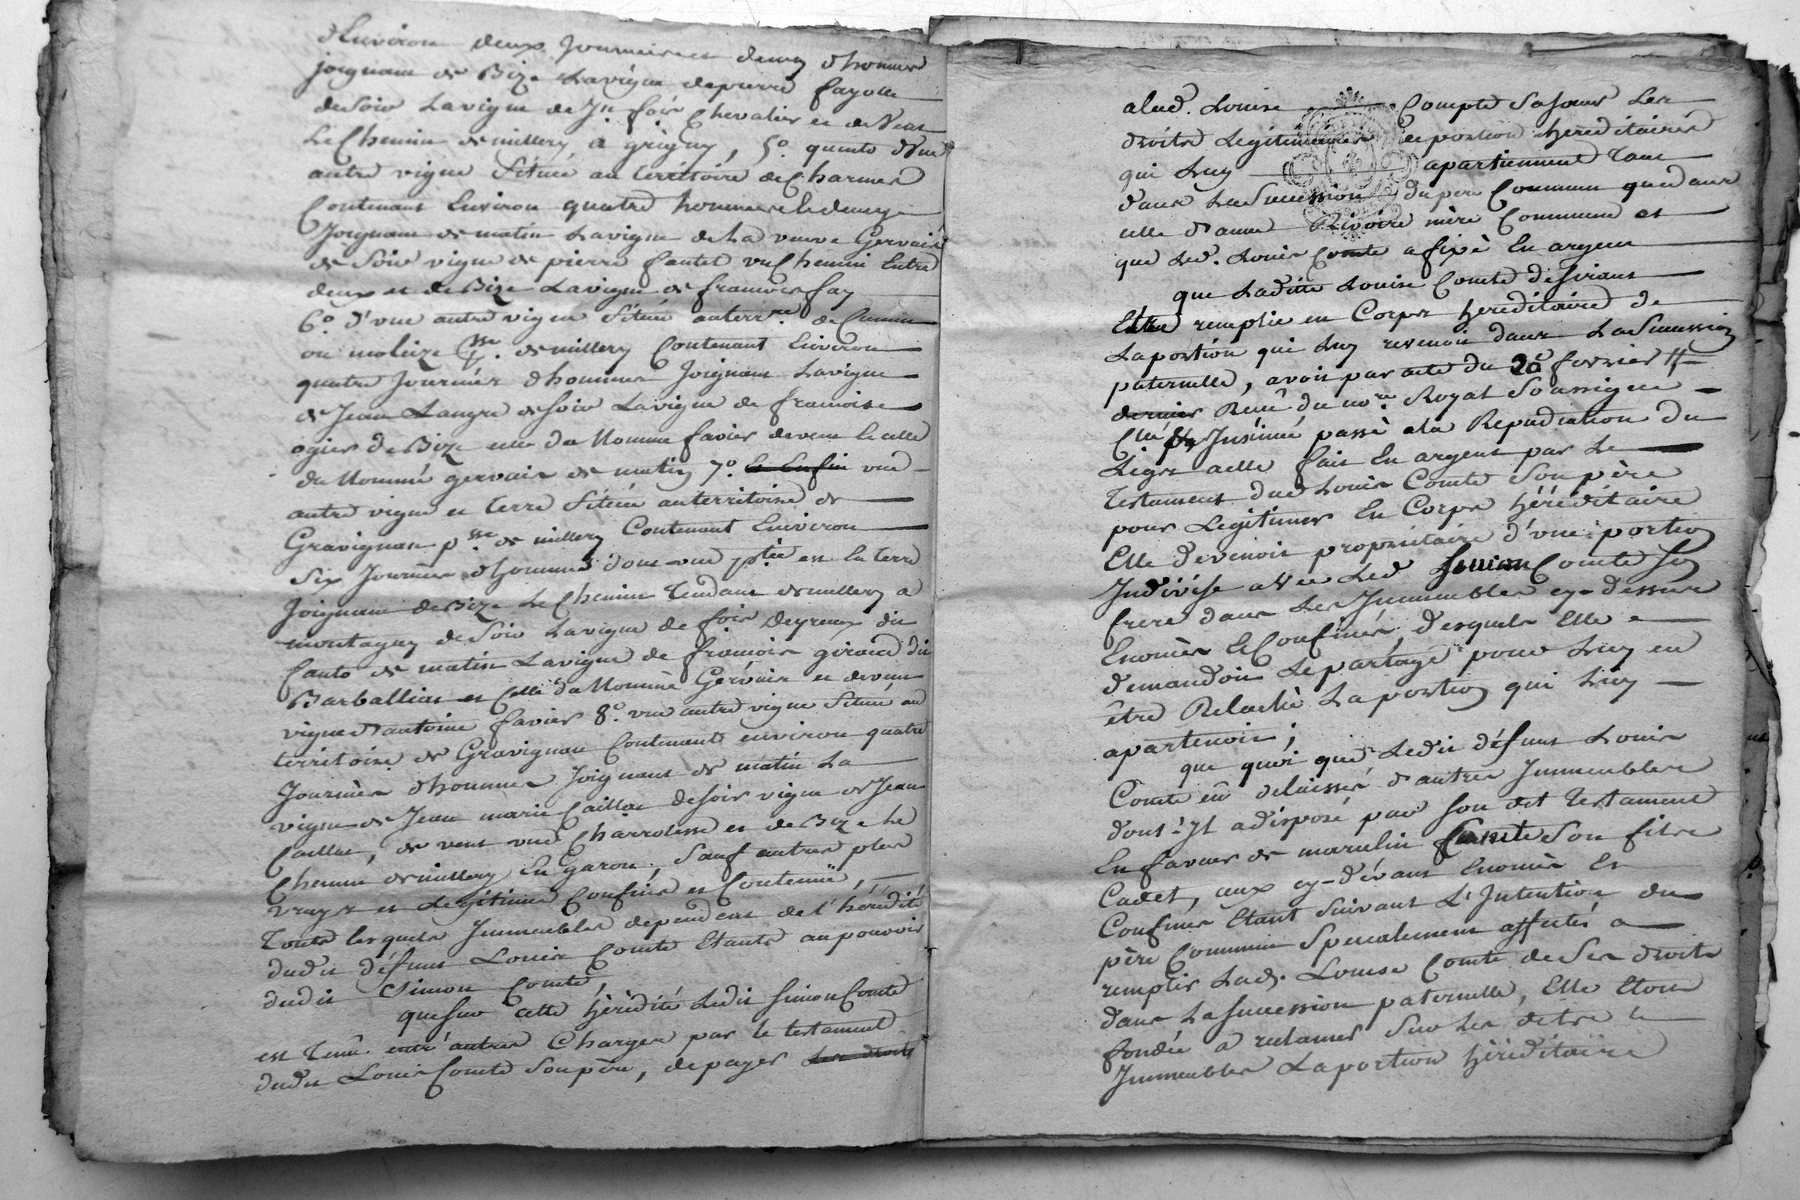 d'Environ deux Journées et demy d'hommes
joignant de Bize La vigne de pierre fayolle
de soir La vigne de Jn. fois Chevalier et de Vent
Le Chemin de millery a grigny, 5°. quinto d'une
autre vigne Située au territoire de Charmes
Contenant Environ quatre hommées le demye
Joignant de matin La vigne de La veuve Gervais
de Soir vigne de pierre fautet un Chemin Entre
deux et de Bize La vigne de francois fay
6°. d'une autre vigne Située au terr.re de
ou molieze psse. de millery Contenant Environ
quatre Journées d'hommes Joignant La vigne
de Jean Langre de soir La vigne de francoise
ogier de Bize celle du Nommé favier de vent le celle
du Nommé gervais de matin 7°. et Enfin une
autre vigne et terre Située au territoire de
Gravignan psse. de millery Contenant Environ
Six Journées d'hommes dont une ptie est en terre
Joignant de Bize Le Chemin Tendant de millery a
montagny de Soir La vigne de fois Deyreux dit
de matin La vigne de francois giraud dit
Barballion et Celle du Nommé Gervais et de vent
vigne d'antoine favier 8°. une autre vigne Située au
territoire de Gravignan Contenant environ quatre
Journées d'hommes Joignant de matin La
vigne de Jean marie Caillot de soir vigne de Jean
Caillot, de vent une Charrotiere et de Bize Le
Chemin de millery En garon, Sauf autres plus
vrays et Legitimes Confins et Contenüe,
Tous lesquels Immeubles dependent de l'hérédité
dudit défunt Louis Comte Etants au pouvoir
dudit Simon Comte,
que sur cette hérédité Ledit Simon Comte
est Tenu entre autres Charges par le testament
dudit Louis Comte Son père, de payer Les droits
a lad. Louise Compte Sa Soeur Les
droits Legitimaires et portion héréditaires
qui Luy apartiennent Tant
dans La Succession du pere Commun que dans
celle d'anne Rivoire mère Commune et
que Led. Louis Comte a fixé En argent
que Laditte Louise Comte desirant
Etre remplie en Corps héréditaires de
La portion qui Luy revenoit dans La Succession
paternelle, avoit par acte du 20e. fevrier
dernier Recû du nore. Royal Soussigné
Clé et Insinüé passé a la Repudiation du
Legs a elle fait En argent par Le
Testament dud. Louis Comte Son père
pour Legitimer En Corps héréditaire
Elle devenoit propriétaire d'une portion
Indivise avec Led. Simon Comte Son
frere dans Les Immeubles cy-dessus
Enomés Et Confinés, desquels Elle
demandoit Le partage pour Luy en
être Relaché La portion qui Luy
apartenoit;
que quoi que Ledit défunt Louis
Comte eû delaissé d'autres Immeubles
dont Il a disposé par Son dit Testament
En faveur de Comte Son fils
Cadet, ceux cy-devant Enomés Et
Confinés Etant Suivant L'Intention du
père Commun Specialement affectés a
remplir Lad. Louise Comte de Ses droits
dans La Succession paternelle, Elle Etoit
fondée a reclamer Sur Les dits
Immeubles La portion héréditaire